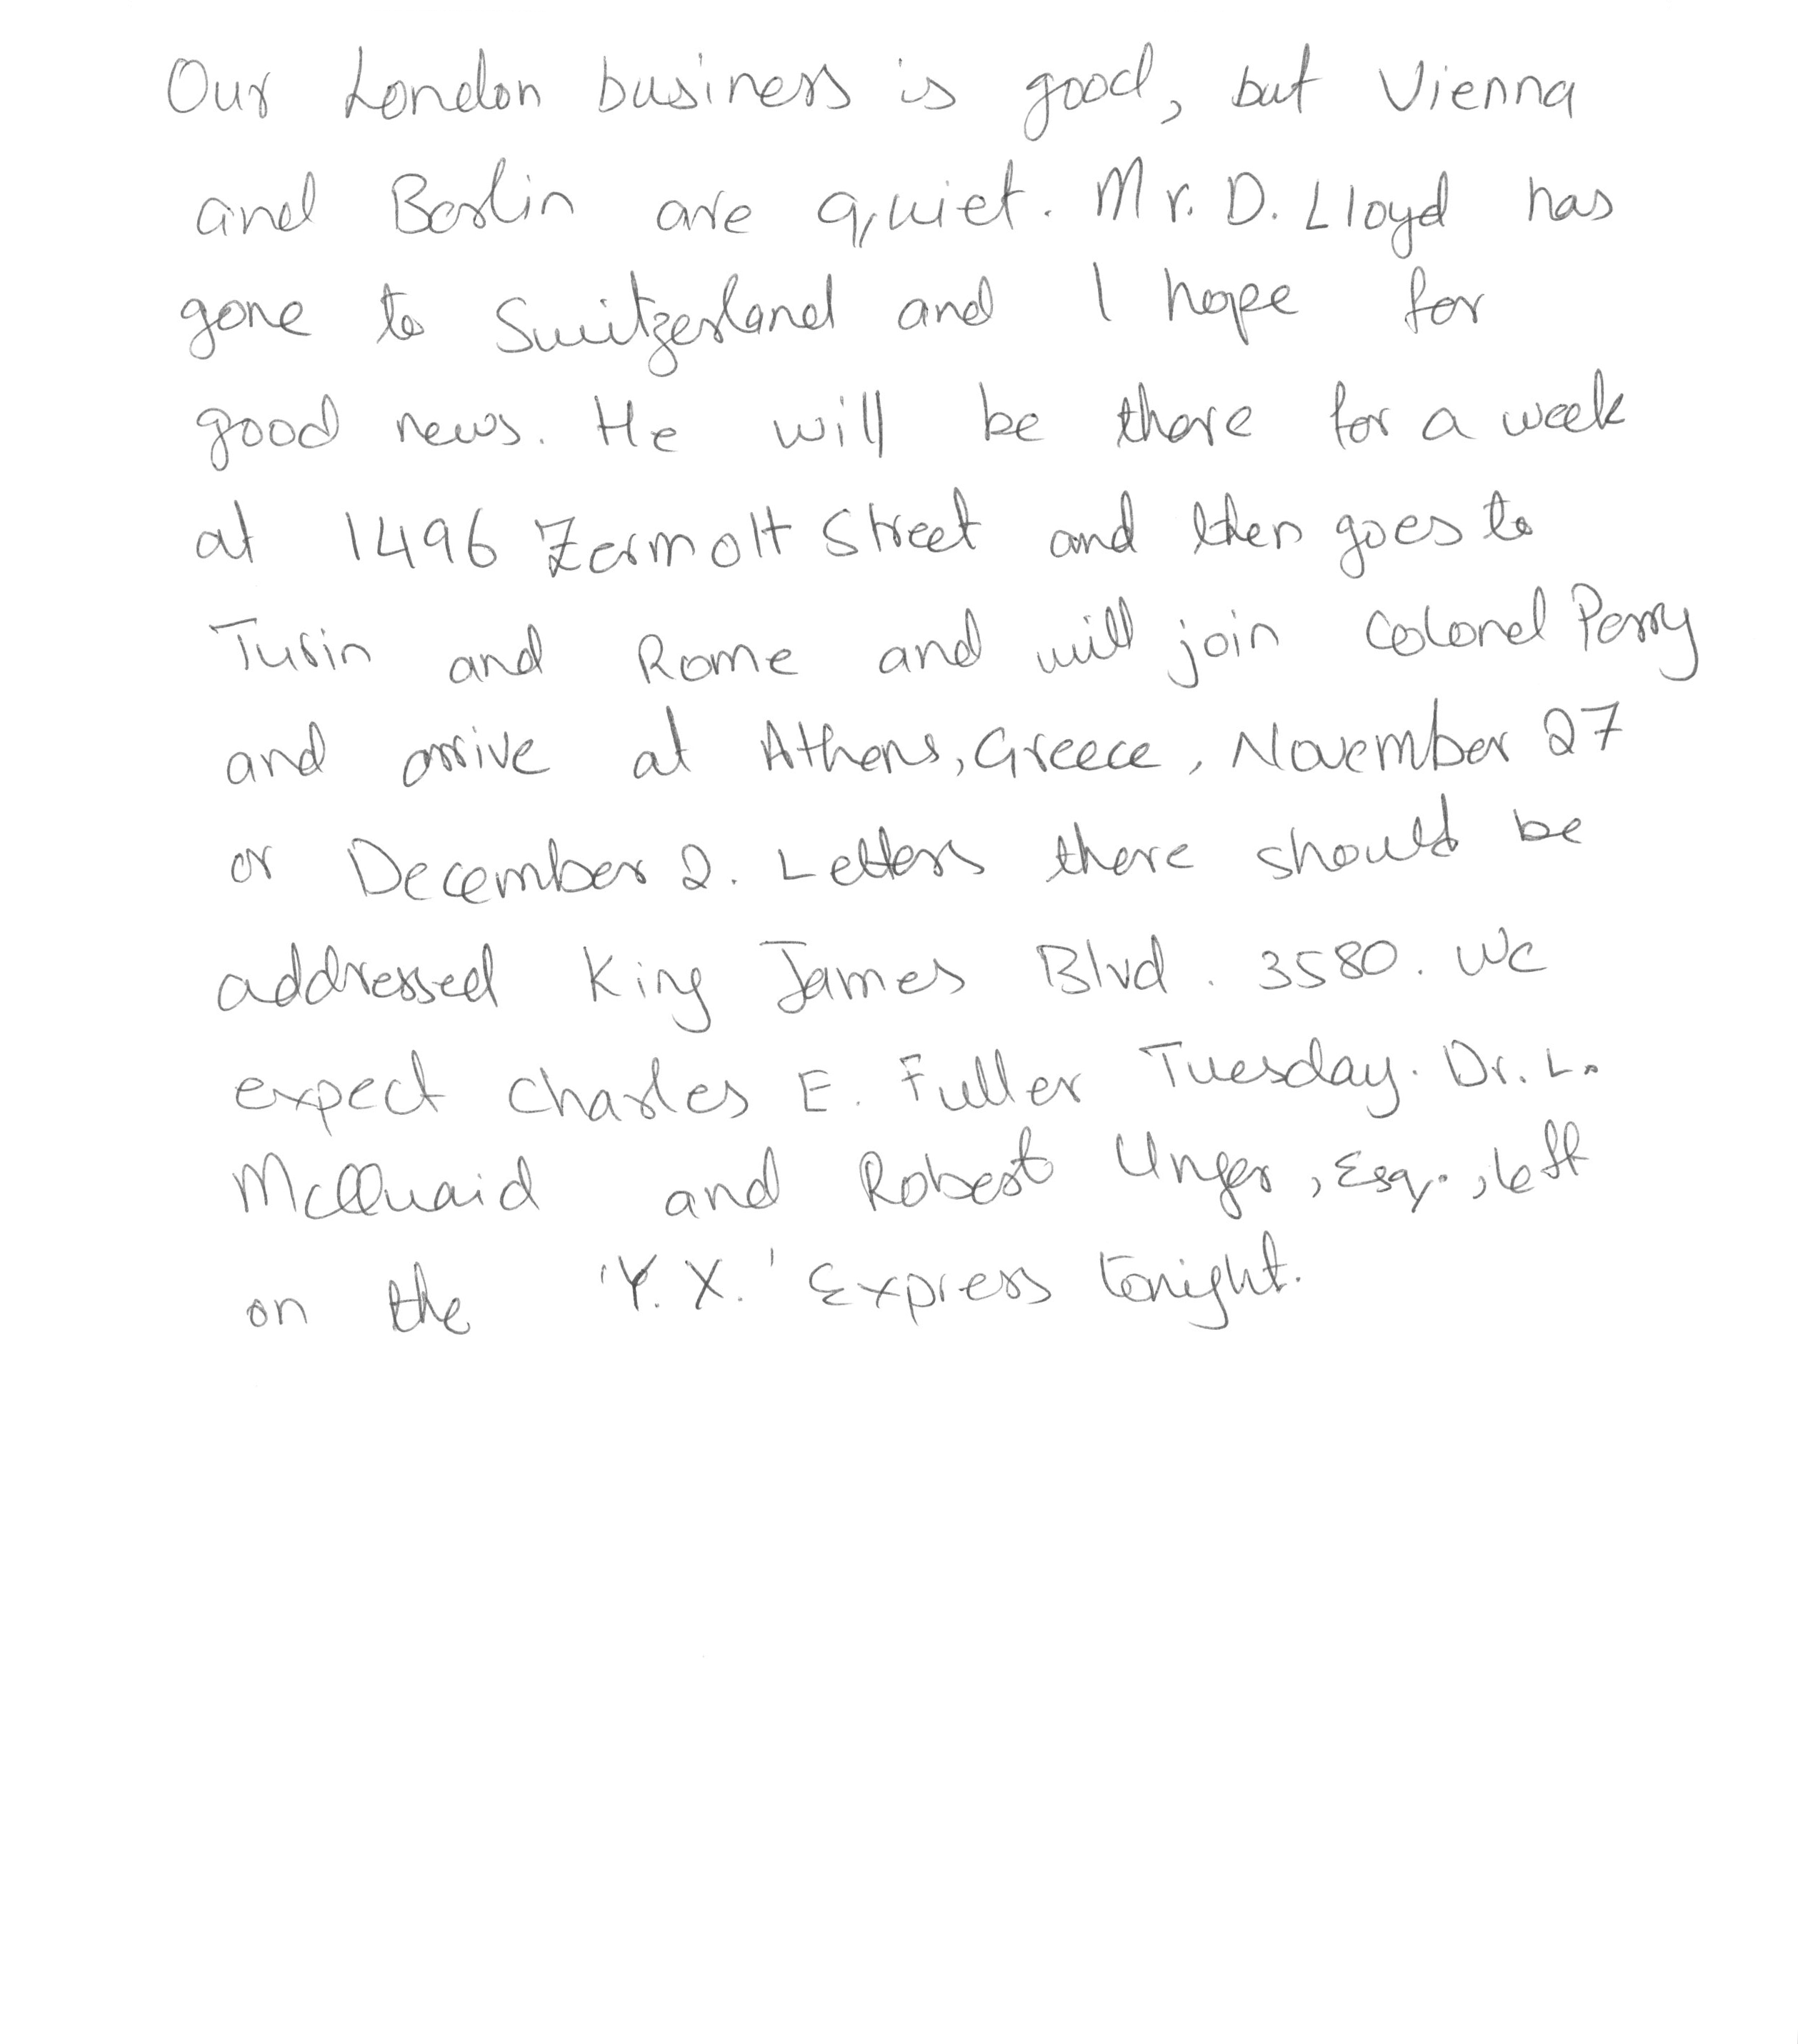 Our London business is good, but Vienna
and Berlin are quiet. Mr. D. Lloyd has
gone to Switzerland and I hope for
good news. He will be there for a week
at 1496 Zermott Street and then goes to
Turin and Rome and will join Colonel Perry
and arrive at Athens, Greece, November 27
or December 2. Letters there should be
addressed King James Blvd. 3580. We
expect Charles E. Fuller Tuesday. Dr. L.
McQuaid and Robert Unger, Esq., left
on the 'Y. X.' Express tonight.